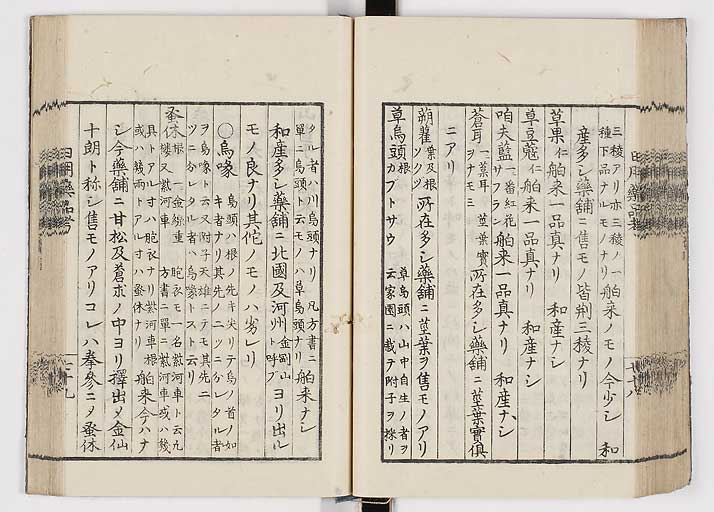 三稜アリ亦三稜ノ一
種下品ナルモノナリ 舶来ノモノ今少シ 和
産多シ藥舗ニ售モノ皆荆三稜ナリ
草果仁 舶来一品真ナリ 和産ナシ
草豆蔲仁 舶来一品真ナリ 和産ナシ
咱夫藍 一番紅花
サフラン 舶来一品真ナリ 和産ナシ
蒼耳 一葈耳 莖葉實
ヲナモミ 所在多シ藥舗ニ莖葉實俱
ニアリ
蒴藋 葉及根
ソクヅ 所在多シ藥舗ニ莖葉ヲ售モノアリ
草烏頭 根
カブトサウ 草烏頭ハ山中自生ノ者ヲ
云家圃ニ栽テ附子ヲ採リ
タル者ハ川烏頭ナリ 凡方書ニ
單ニ烏頭ト云モノハ草烏頭ナリ 舶来ナシ
和産多シ藥舗ニ北國及河州金剛山
ト呼ブ ヨリ出ル
モノ良ナリ其佗ノモノハ劣レリ
〇烏喙 烏頭ハ根ノ先キ尖リテ烏ノ首ノ如
キ者ナリ其先ノ二ツニ分レタル者
ヲ烏喙ト云又附子天雄ニテモ其先二
ツニ分レタル者ハ烏喙トスト云リ
蚤休 根 一金線重 胞衣モ一名紫河車ト云凡
樓又紫河車 方書ニ單ニ紫河車或ハ幾
具トアル寸ハ胞衣ナリ紫河車根
或ハ幾兩トアル寸ハ蚤休ナリ 舶来今ハナ
シ今藥舗ニ甘松及蒼朮ノ中ヨリ擇出〆金仙
十朗ト称シ售モノアリコレハ拳參ニ〆蚤休